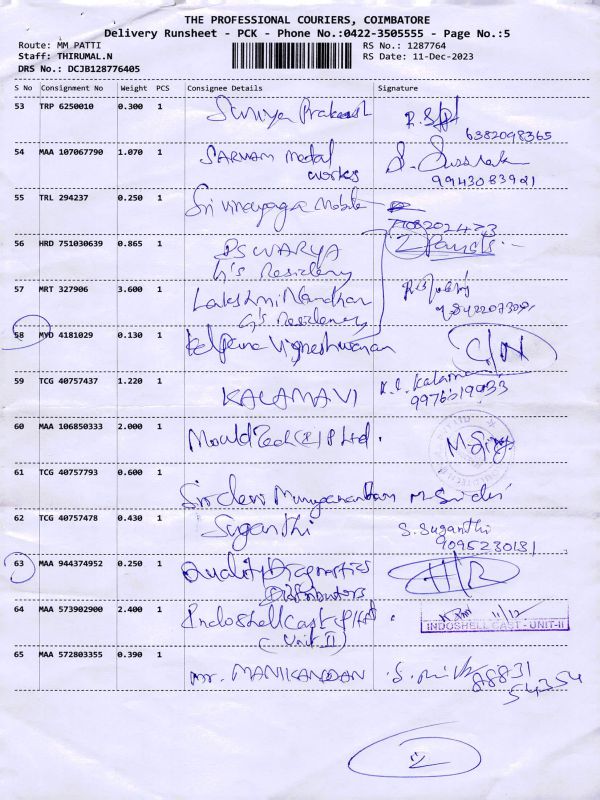 THE PROFESSIONAL COURIERS, COIMBATORE
Delivery Runsheet - PCK - Phone No.:0422-3505555 - Page No.:5
Route: MM PATTI RS No.: 1287764
Staff: THIRUMAL.N RS Date: 11-Dec-2023
DRS No.: DCJB128776405
S No Consignment No Weight PCS Consignee Details Signature
53 TRP 6250010 0.300 1 Suriya Prakash
6382098365
54 MAA 107067790 1.070 1 SARWAM metal
works
9943083921
55 TRL 294237 0.250 1 Sri Vinayaga Mobile
56 HRD 751030639 0.865 1 ISWARYA
G's Residency
57 MRT 327906 3.600 1 Lakshmi Nandhan
G's Residency
58 MYD 4181029 0.130 1 Kalpana Vigneshwaran C/N
59 TCG 40757437 1.220 1 KALAMAVI
60 MAA 106850333 2.000 1 Mould Tech (I) P Ltd.
61 TCG 40757793 0.600 1
Sri devi Muruganantham M. Sridevi
62 TCG 40757478 0.430 1 Suganthi S. Suganthi
9095230131
63 MAA 944374952 0.250 1 Quality Diagnostics
Distributors
64 MAA 573902900 2.400 1 Indoshell Cast P Ltd. 11/12
(Unit II) INDOSHELL CAST - UNIT-II
65 MAA 572803355 0.390 1 Mr. MANIKANDAN 88831
54354
2